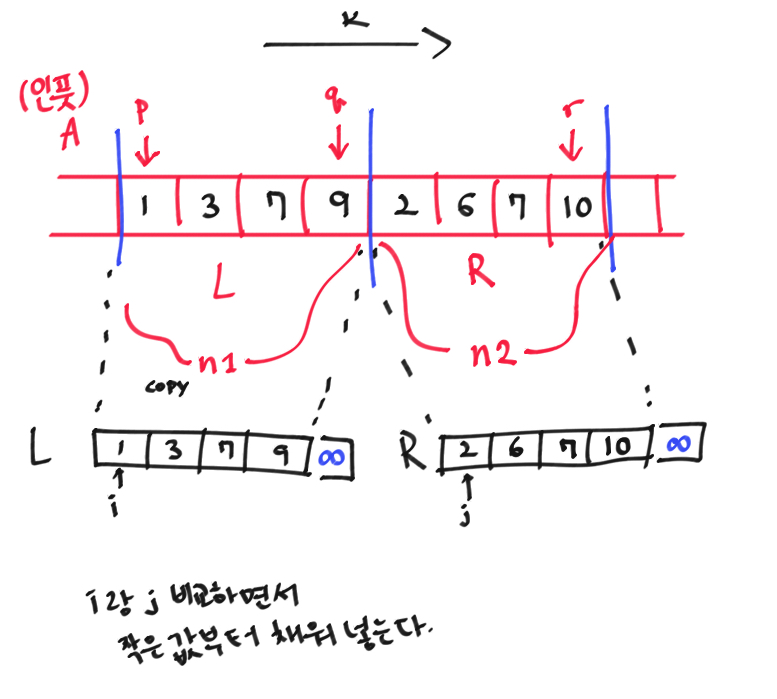 K
(인풋)
A
p q r
1 3 7 9 2 6 7 10
L R
n1 n2
copy
L 1 3 7 9 ∞ R 2 6 7 10 ∞
i j
i랑 j 비교하면서
작은값부터 채워 넣는다.